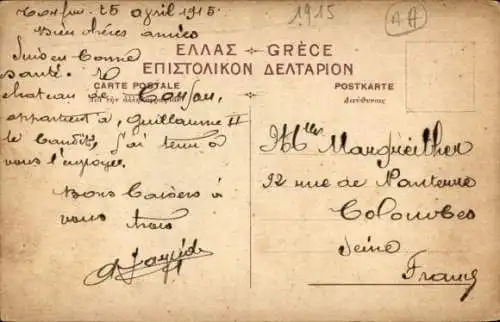 Corfou 15 avril 1915.
1915
AA
Bien chères amies
Suis en bonne
santé. Le
chateau de Corfou,
appartient à, Guillaume II
le bandit, j'ai tenu à
vous l'envoyer.
Bons baisers à
vous trois
ΕΛΛΑΣ - GRÈCE
ΕΠΙΣΤΟΛΙΚΟΝ ΔΕΛΤΑΡΙΟΝ
CARTE POSTALE
POSTKARTE
Διεύθυνσις
Mlles
32 rue de Nanterre
Colombes
Seine
France